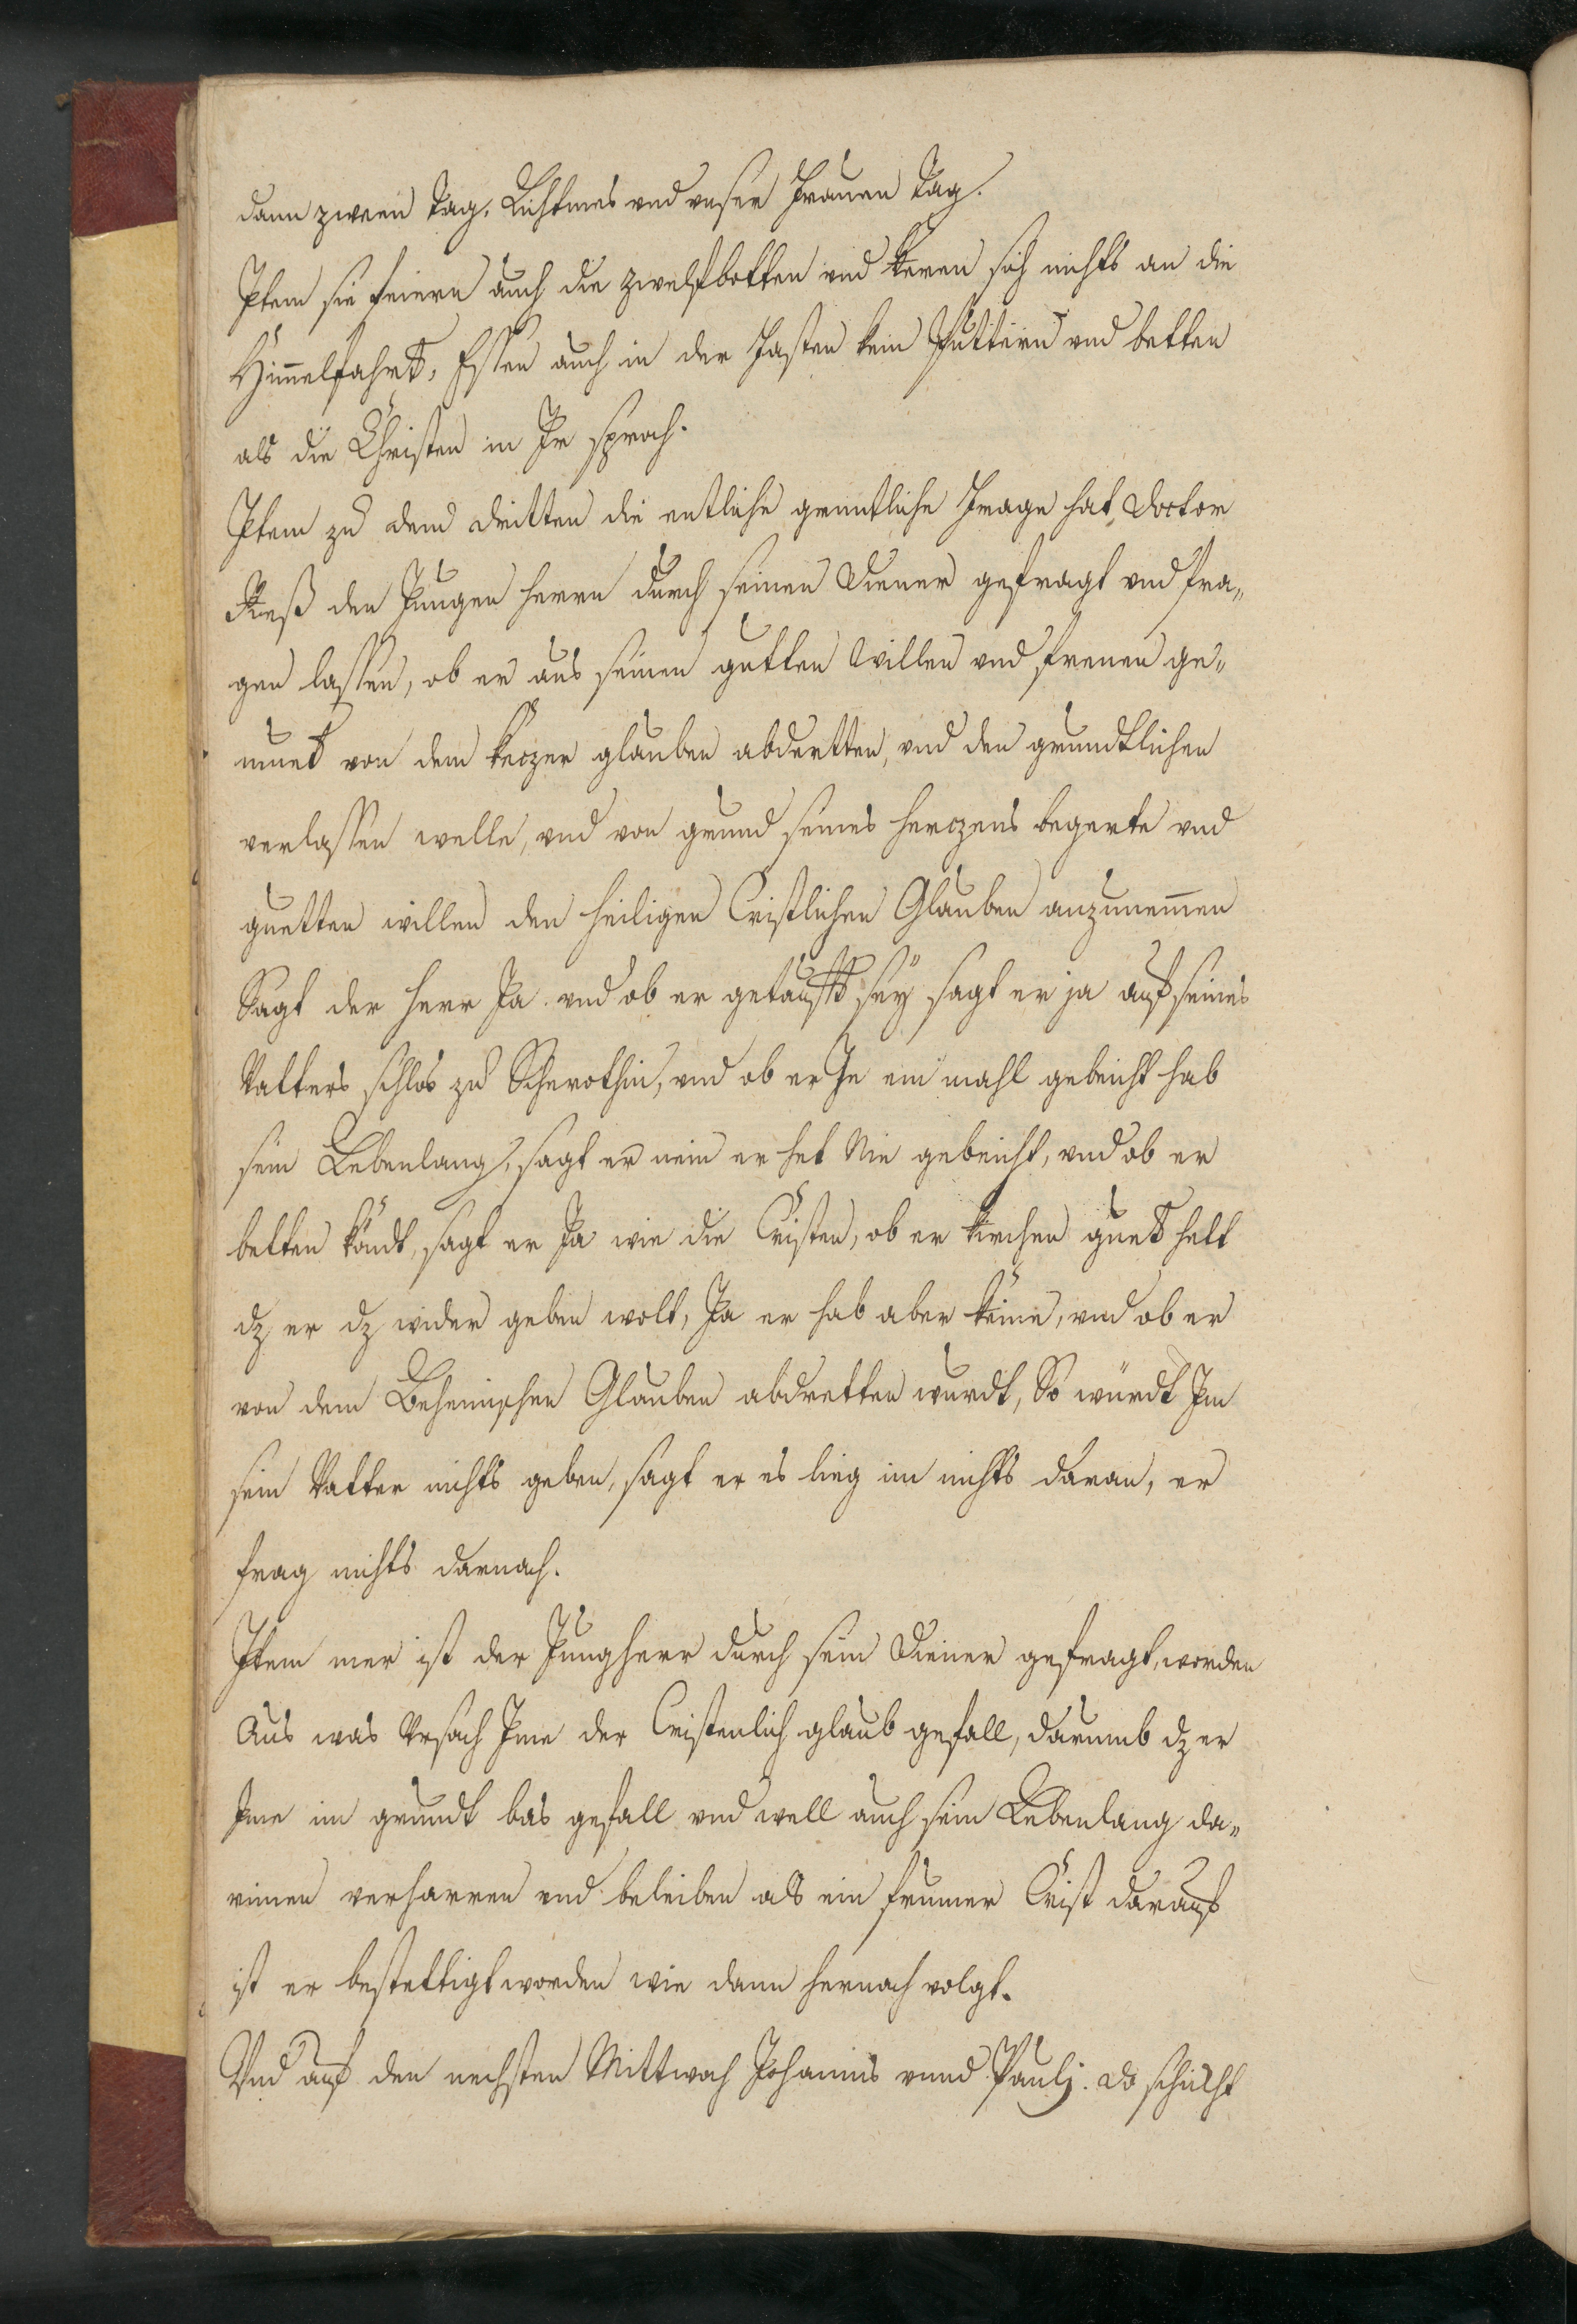 dann zween Tag, Lichtmes vnd vnser Frauen Tag.
Item sie feiern auch die zwelfbotten vnd keren sich nichts an die
Him̄elfahrt, Essen auch in der Fasten kein Puttern vnd betten
als die Christen in Ir sprach.
Item zu dem dritten die entliche gruntliche Frage hat Doctor
Reß den Jungen herrn durch seinen Diener gefragt vnd fra„
gen lassen, ob er aus seinen gutten Willen vnd freuen ge„
muet von dem keczer glauben abdretten, vnd den grundtlichen
verlassen welle, vnd von grund seines herczens begerte vnd
guetten willen den heiligen Cristlichen Glauben anzunem̄en
Sagt der herr Ja. vnd ob er getaufft sey sagt er ja auf seines
Vatters schlos zu Scherothin, vnd ob er Je ein mahl gebeicht hab
sein Lebenlang, sagt er nein er het Nie gebeicht, vnd ob er
betten köndt, sagt er Ja wie die Cristen, ob er kirchen guet helt
dz er dz wider geben wolt, Ja er hab aber keine, vnd ob er
von dem Behemischen Glauben abdretten wurdt, So würdt Im
sein Vatter nichts geben, sagt er es lieg im nichts daran, er
frag nichts darnach.
Item mer ist der Jungherr durch sein Diener gefragt worden
Aus was Vrsach Ime der Cristenlich glaub gefall, darumb dz er
Ime im grundt bas gefall vnd well auch sein Lebenlang da„
rinnen verharren vnd beleiben als ein frumer Crist darauf
ist er bestettigt worden wie dann hernach volgt.
Vnd auf den nechsten Mittwoch Johannis vnnd Paulj. do schickht